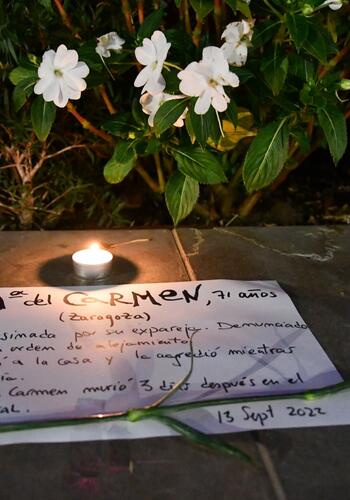 ª del CARMEN, 71 años
(Zaragoza)
esinada por su expareja. Denunciado
orden de alejamiento.
a la casa y la agredió mientras
Carmen murió 3 días después en el
13 Sept 2022